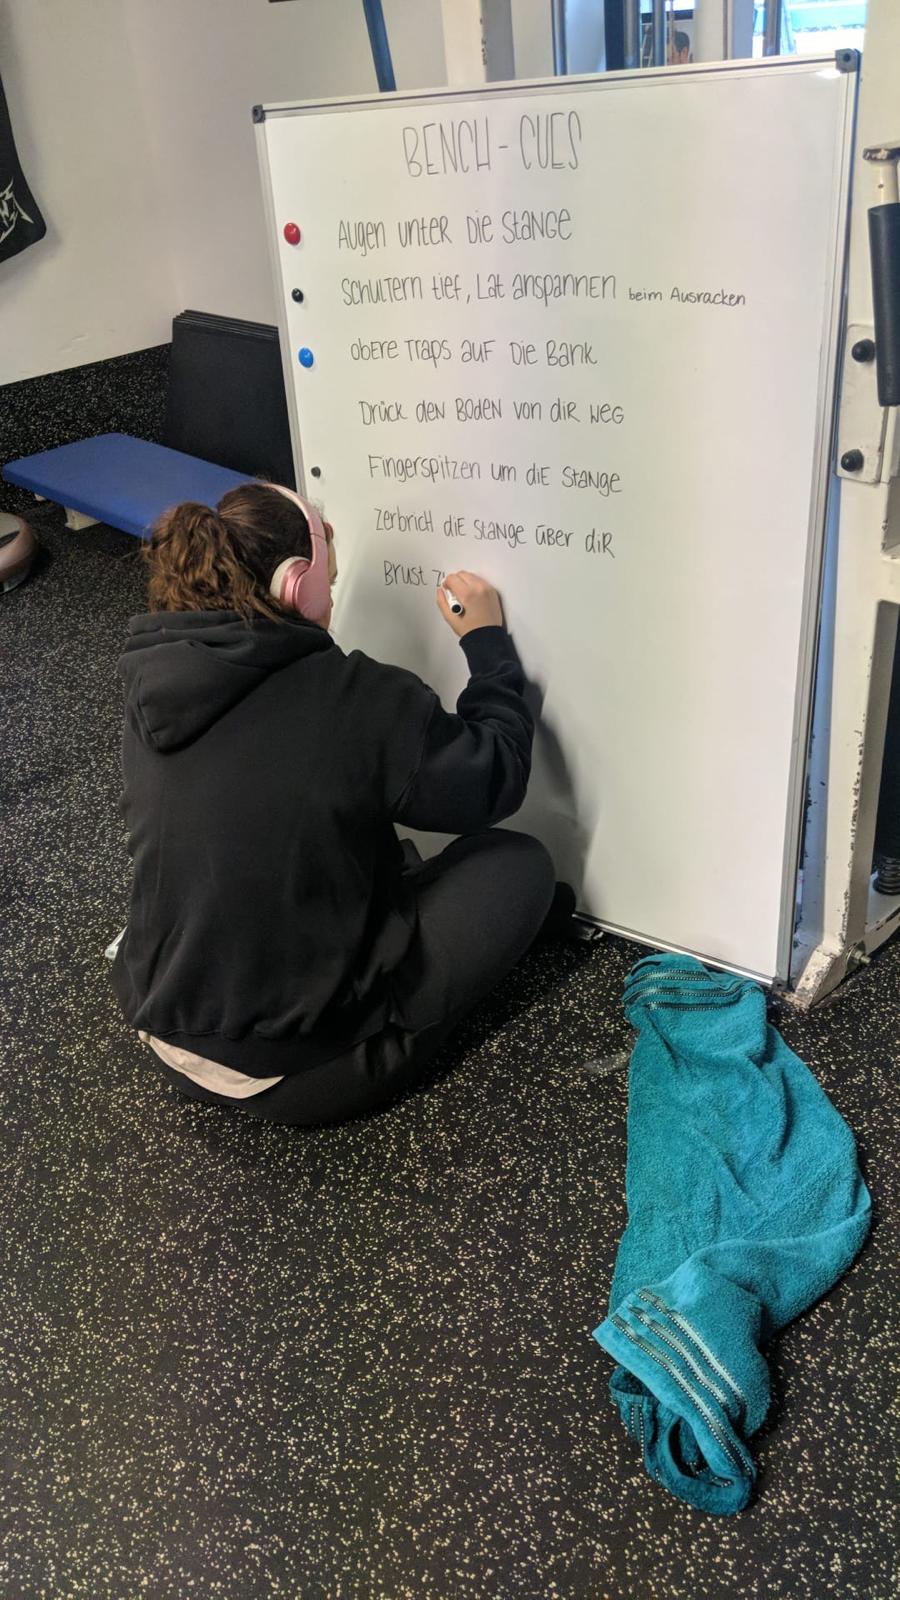 BENCH - CUES
Augen unter die Stange
Schultern tief, Lat anspannen beim Ausracken
obere Traps auf die Bank
Drück den Boden von dir weg
Fingerspitzen um die Stange
Zerbrich die Stange über dir
Brust